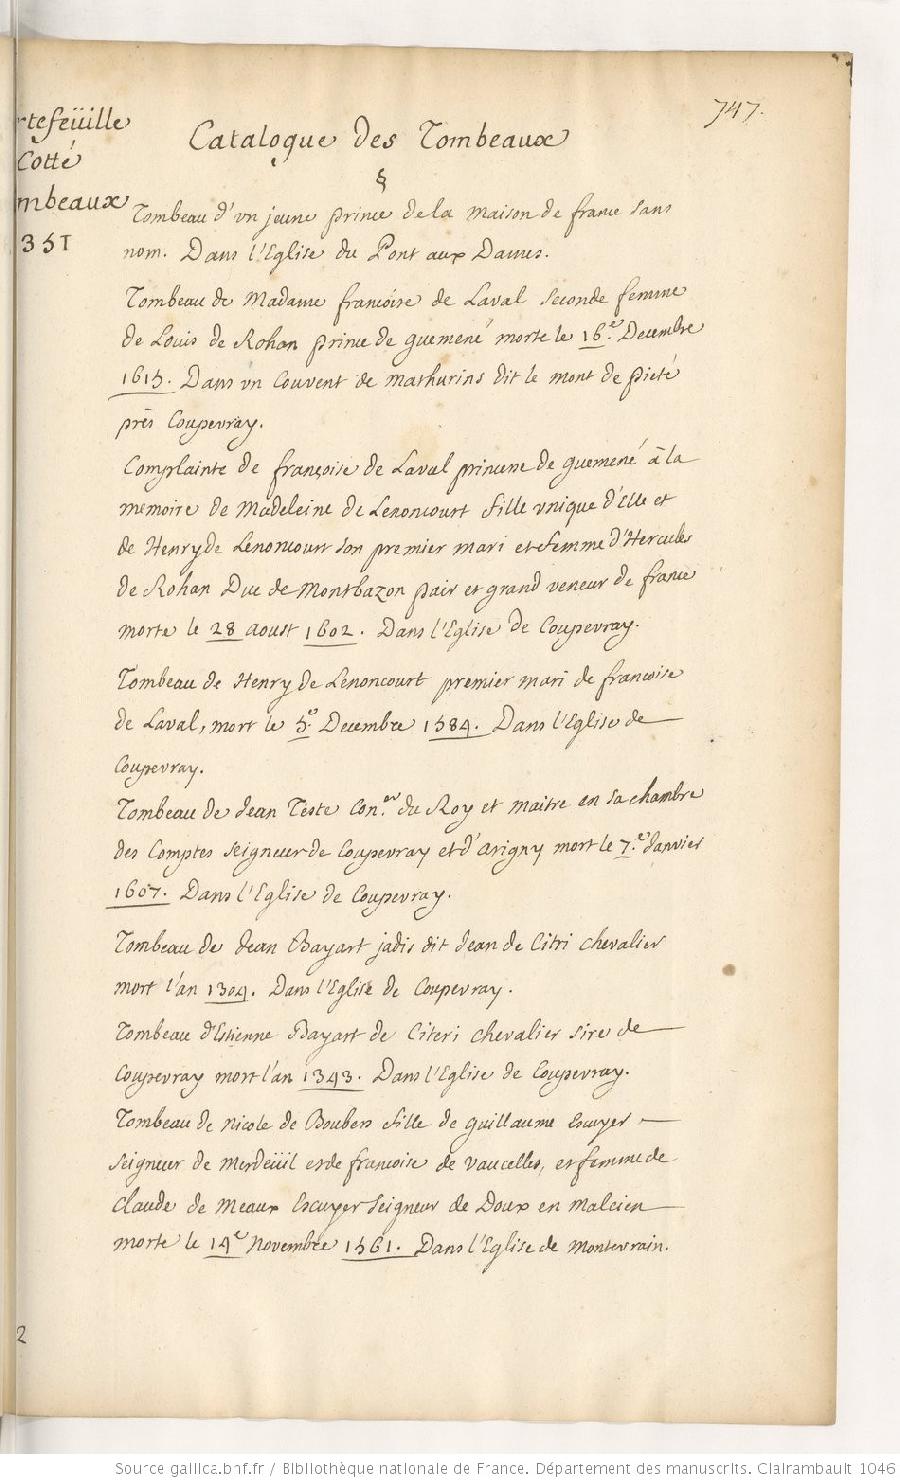 747.
rtefeüille
Cotté
mbeaux
351
Catalogue Des Tombeaux
§
Tombeau d'vn jeune prince de la maison de france sans
nom. Dans l'Eglise du Pont aux Dames.
Tombeau de Madame francoise de Laval seconde femme
de Louis de Rohan prince de guemené morte le 16.e Decembre
1615. Dans vn Couvent de mathurins dit le mont de pieté
près Coupevray.
Complainte de françoise de Laval princesse de guemené à la
memoire de Madeleine de Lenoncourt fille vnique d'Elle et
de Henry de Lenoncourt son premier mari et femme d'Hercules
de Rohan Duc de Montbazon pair et grand veneur de france
morte le 28 aoust 1602. Dans l'Eglise de Coupevray.
Tombeau de Henry de Lenoncourt premier mari de francoise
de Laval, mort le 5.e Decembre 1584. Dans l'Eglise de
Coupevray.
Tombeau de Jean Teste Con.er du Roy et maitre en sa chambre
des Comptes seigneur de Coupevray et d'arigny mort le 7.e Janvier
1607. Dans l'Eglise de Coupevray.
Tombeau de Jean Bayart jadis dit Jean de Citri chevalier
mort l'an 1304. Dans l'Eglise de Coupevray.
Tombeau d'Estienne Bayart de Citeri chevalier sire de
Coupevray mort l'an 1343. Dans l'Eglise de Coupevray.
Tombeau de nicole de Boubers fille de guillaume Escuyer
seigneur de Merdeüil et de francoise de vaucelles, et femme de
Claude de Meaux Escuyer seigneur de Doux en Malcien
morte le 14e Novembre 1561. Dans l'Eglise de Montevrain.
2
Source gallica.bnf.fr / Bibliothèque nationale de France. Département des manuscrits. Clairambault 1046